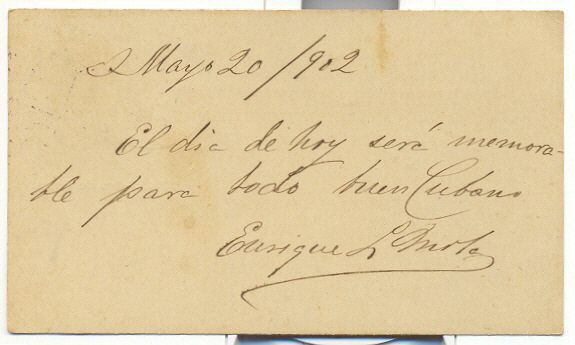 Mayo 20/902
El dia de hoy será memora-
ble para todo buen Cubano
Enrique L